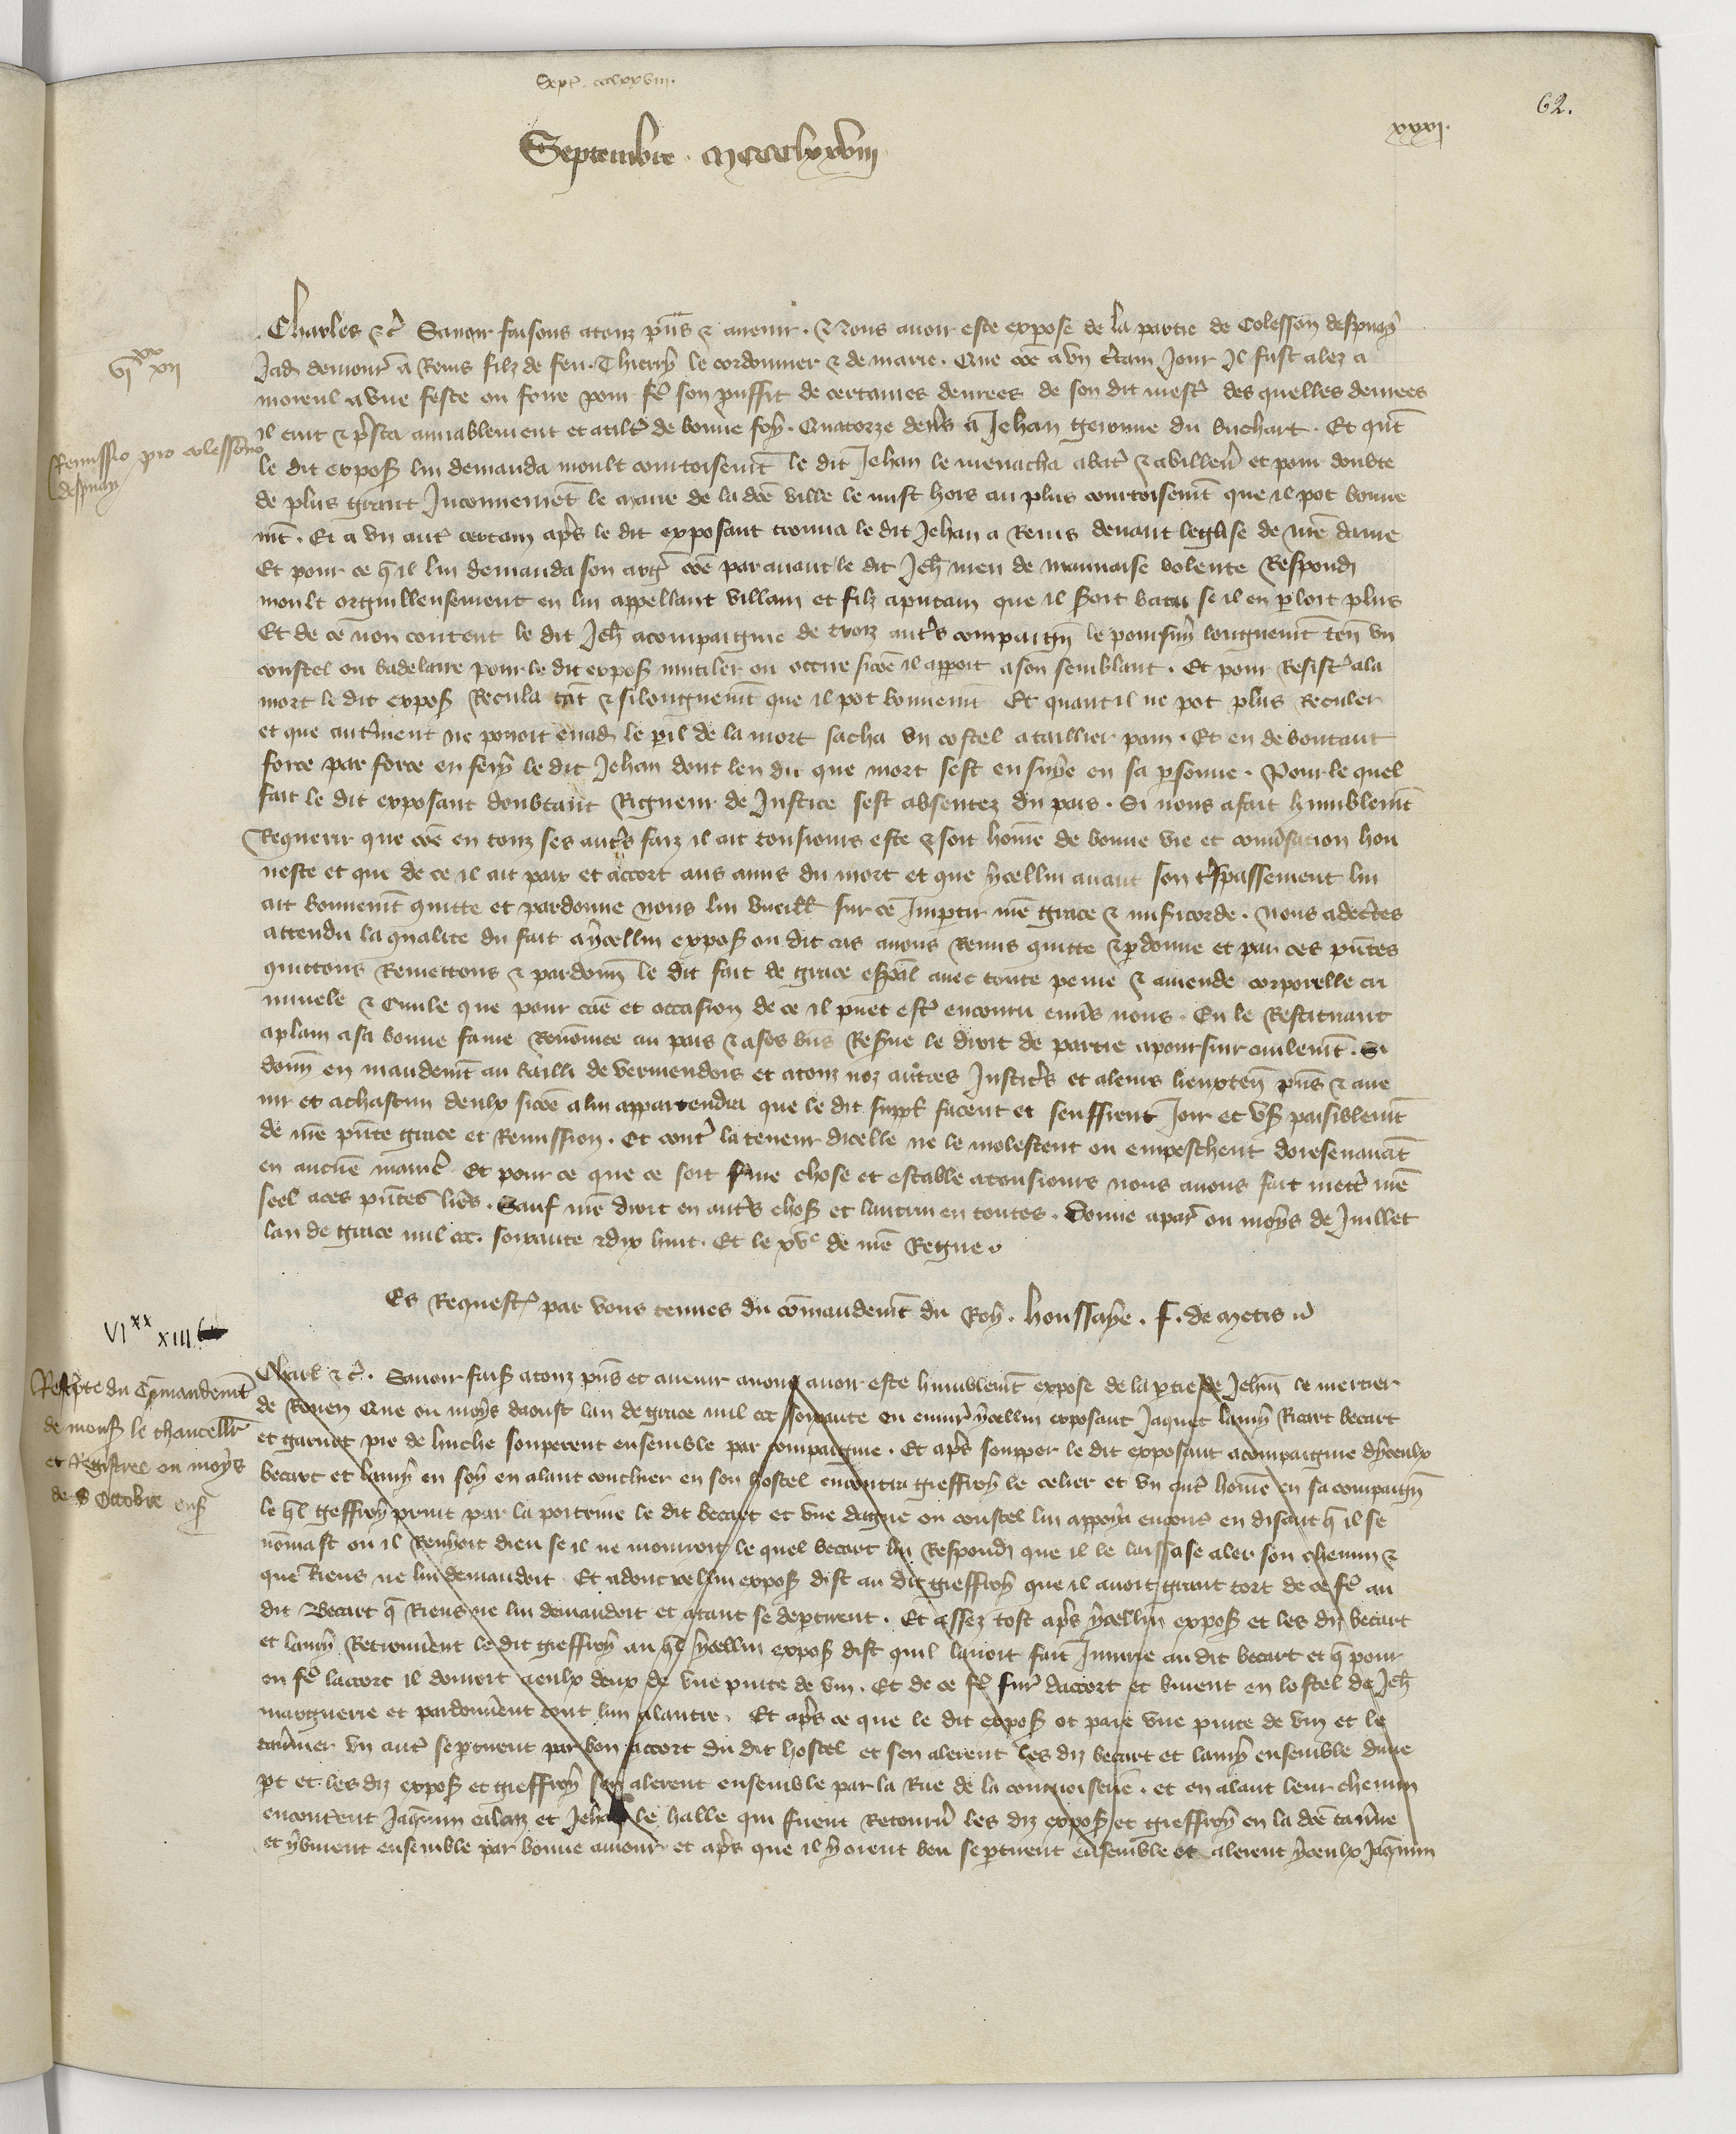 Sept. ccclxxviii.
62.
xxxi.
Septembre . mccclxxviii
Charles &c̄ Sauoir faisons atouz pn̄s & auenir . A Nous auoir este expose de la partie de Colesson despnay
Jad demour̄ a Reins filz de feu . Thierry le cordonnier & de marie . Que cōe a vn c̄tain jour Il fust alez a
moieul a vne feste ou foire pour fe son ꝓuffit de certaines denrees de son dit mest̄ des quelles denrees
VIxx XII
Remissio pro colessono despnay
il cuit & p̄sta amiablement et a tiltr̄ de bonne foy . Quatorze den̄s a Jehan geronne du buchart . Et qn̄t
le dit expos̄ lui demanda moult courtoisemt̄ le dit Jehan le menacha a batr̄ & a villen̄ et pour doubte
de plus grant Inconuenient le maire de la dc̄e ville le mist hors au plus courtoisemt̄ que il pot bonne
mt̄ . Et a vn aut̄ certain apr̄s le dit exposant trouua le dit Jehan a Reins deuant leglise de nr̄e dame
Et pour ce q̄ il lui demanda son arḡ cōe par auant le dit Jeh̄ meu de mauuaise volente Respondi
moult orguilleusement en lui appellant villain et filz a putain que il seroit batu se il en ꝑloit plus
Et de ce non content le dit Jeh̄ acompaignie de troiz aut̄s compaign̄ le poursuy longuemt̄ ten̄ vn
coustel ou badelaire pour le dit expos̄ mutiler ou occire sicōe il apparoit a son semblant . Et pour Resist̄ a la
mort le dit expos̄ Recula tāt & si longuemt̄ que il pot bonnemt̄ Et quant il ne pot plus Reculer
et que autrement ne pouoit euad̄ le ꝑil de la mort sacha vn costel a taillier pain . Et en deboutant
force par force en fery le dit Jehan dont len dit que mort sest ensuye en sa ꝑsonne . Pour le quel
fait le dit exposant doubtant Rigueur de Justice sest absentez du pais . Si nous a fait humblemt̄
Requerir que cōe en touz ses aut̄s faiz il ait tousiours este & soit home de bonne vie et conu̇sation hon
neste et que de ce il ait paix et accort aus amis du mort et que ycellui auant son t̄spassement lui
ait bonnemt̄ quitte et pardonne nous lui vueill̄ sur ce Impartir nr̄e grace & mis̄icorde . Nous adec̄tes
attendu la qualite du fait a ycellui expos̄ ou dit cas auons Remis quitte & ꝑdonne et par ces pn̄tes
quittons Remettons & pardonn̄ le dit fait de grace esp̄al auec toute peine & amende corporelle cri
minele & Ciuile que pour cāe et occasion de ce il puet est̄ encouru enu̇s nous . En le Restituant
a plain a sa bonne fame Renōmee au pais & a ses bn̄s Res̄ue le droit de partie a poursuir ciuilemt̄ . Si
donn̄ en mandemt̄ au bailli de vermendois et a touz noz aut̄es Justic̄s et a leurs lieuxten̄ pn̄s & aue
nir et a chascun deulx sicōe a lui appartendra que le dit supp̄l facent et seuffrent Joir et vs̄ paisiblemt̄
de nr̄e pn̄te grace et Remission . Et cont̄ la teneur dicelle ne le molestent ou empeschent doresenauāt
en aucūe manie᷑ Et pour ce que ce soit ferme chose et estable a tousiours nous auons fait mett̄ nr̄e
seel a ces pn̄tes lr̄es . Sauf nr̄e droit en aut̄s chos̄ et lautrui en toutes . Donne a par̄ ou moys de Juillet
lan de grace mil ccc . soixante & dix huit . Et le xve de nr̄e Regne .
Es Request̄ par vous tenues du cōmandemt̄ du Roy . houssaye . F . de Metis
VIxx XIII
Rescripte du Cōmandemt̄
de mons̄ le chancellr̄
et Registree ou moys
de Octobre ens̄
Charl̄ &c̄ . Sauoir fais̄ atouz pn̄s et auenir a nous auoir este humblemt̄ expose de la ꝑtie de Jehn̄ le mercier
de Rouen Que ou moys daoust lan de grace mil ccc soixante ou enuir̄ ycellui exposant Jaquet lamy Ricart becart
et garnot pie de luiche souperent ensemble par compaignie . Et apr̄s soupper le dit exposant acompaignie dyceulx
becart et lamy en soy en alant couchier en son hostel encontra gieffroy le celier et vn aut̄ home en sa compaign̄
le q̄l geffroy print par la poitrine le dit becart et vne dague ou coustel lui appoya encons en disant q̄ il se
nōmast ou il Renioit dieu se il ne mouroit le quel becart lui Respondi que il le laissase aler son chemin &
que Riens ne lui demandoit . Et adonc cellui expos̄ dist au dit gieffroy que il auoit grant tort de ce fe᷑ au
dit Becart q̄ Riens ne lui demandoit et atant se dep̄tirent . Et assez tost apr̄s ycellui expos̄ et les diz becart
et lamy Retrouuerent le dit gieffroy au q̄l ycellui expos̄ dist quil lauoit fait Iniurie au dit becart et q̄ pour
en fe᷑ laccort il donroit a eulx deux de vne pinte de vin . Et de ce fe᷑ fur̄ daccort et buirent en lostel de Jeh̄
marguerie et pardonnerent tout lun a lautre . Et apr̄s ce que le dit expos̄ ot paie vne pinte de vin et le
tau̇nier vn aut̄ se ꝑtirent par bon accort du dit hostel et sen alerent les diz becart et lamy ensemble dune
ꝑt et les diz expos̄ et gieffroy sen alerent ensemble par la Rue de la couruoiserie . et en alant leur chemin
encontrent Jaq̄min et Jehan le halle qui firent Retourn̄ les diz expos̄ et gieffroy en la dc̄e tau̇ne
et y burent ensemble par bonne amour et apr̄s que il y orent beu se ꝑtirent ensemble et alerent yceulx Jaq̄min